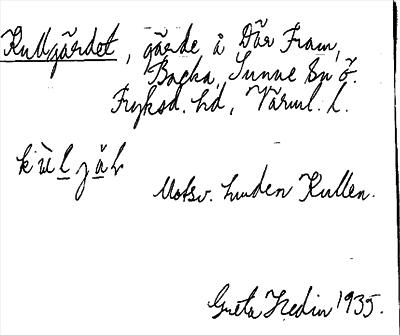 Kullgärdet, gärde å Där Fram,
Backa, Sunne sn Ö.
Fryksd. hd, Värml. l.
kùl jäṛ
Motsv. hunden Kullen.
Greta Hedin 1935.